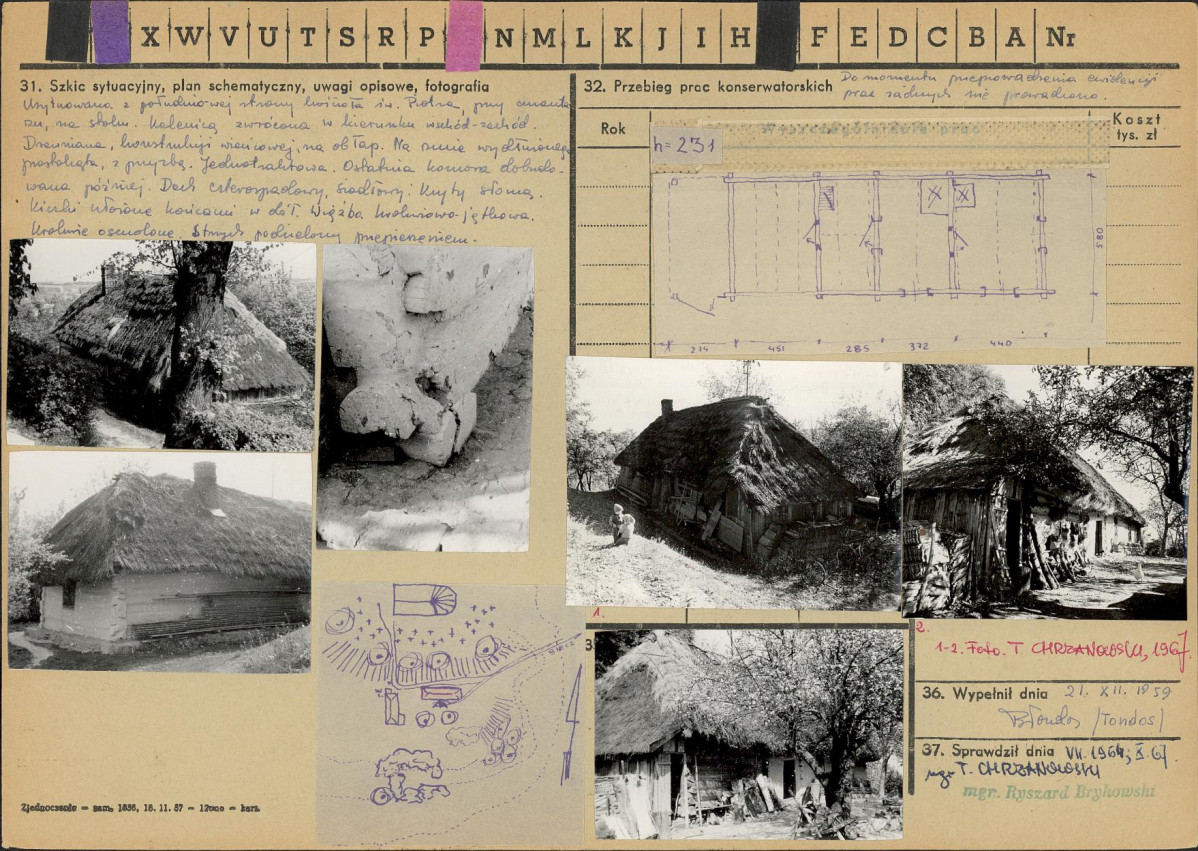 X W V U T S R P N M L K J I H F E D C B A Nr
31. Szkic sytuacyjny, plan schematyczny, uwagi opisowe, fotografia
Usytuowana z południowej strony kościoła św. Piotra, przy cmenta-
rzu, na stoku. Kalenicą zwrócona w kierunku wschód-zachód.
Drewniana, konstrukcji wieńcowej, na obłap. Na rzucie wydłużonego
prostokąta, z przyzbą. Jednotraktowa. Ostatnia komora dobudo-
wana później. Dach czterospadowy, siodłowy. Kryty słomą.
Kiczki ułożone końcami w dół. Więźba krokwiowo-jętkowa.
Krokwie osmolone. Strych podzielony przepierzeniem.
32. Przebieg prac konserwatorskich
Do momentu przeprowadzenia ewidencji
prac żadnych nie prowadzono.
Rok
Wyszczególnienie prac
Koszt
tys. zł
h=231
580
214 451 285 372 440
1.
2.
1-2. Foto. T. CHRZANOWSKI, 1967.
36. Wypełnił dnia 21. XII. 1959
(Tondos)
37. Sprawdził dnia VII. 1964; X. 67
mgr T. CHRZANOWSKI
mgr. Ryszard Brykowski
Zjednoczenie — zam. 1836, 18. 11. 57 — 12000 — karz.